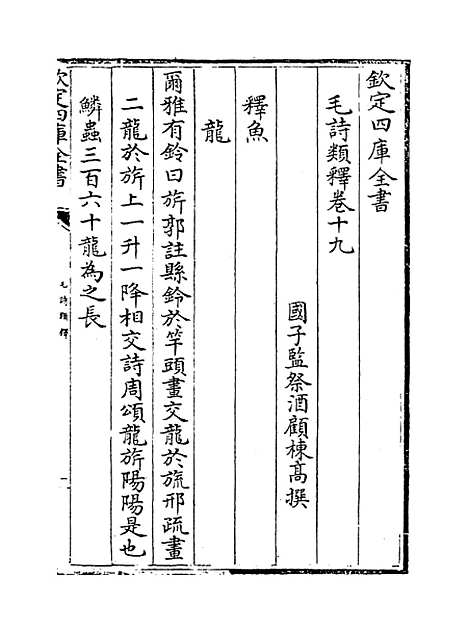 欽定四庫全書
毛詩類釋卷十九
國子監祭酒顧棟髙撰
釋魚
龍
爾雅有鈴曰旂郭註縣鈴於竿頭畫交龍於旒邢疏畫
二龍於旂上一升一降相交詩周頌龍旂陽陽是也
鱗蟲三百六十龍為之長
欽定四庫全書
毛詩類釋
一